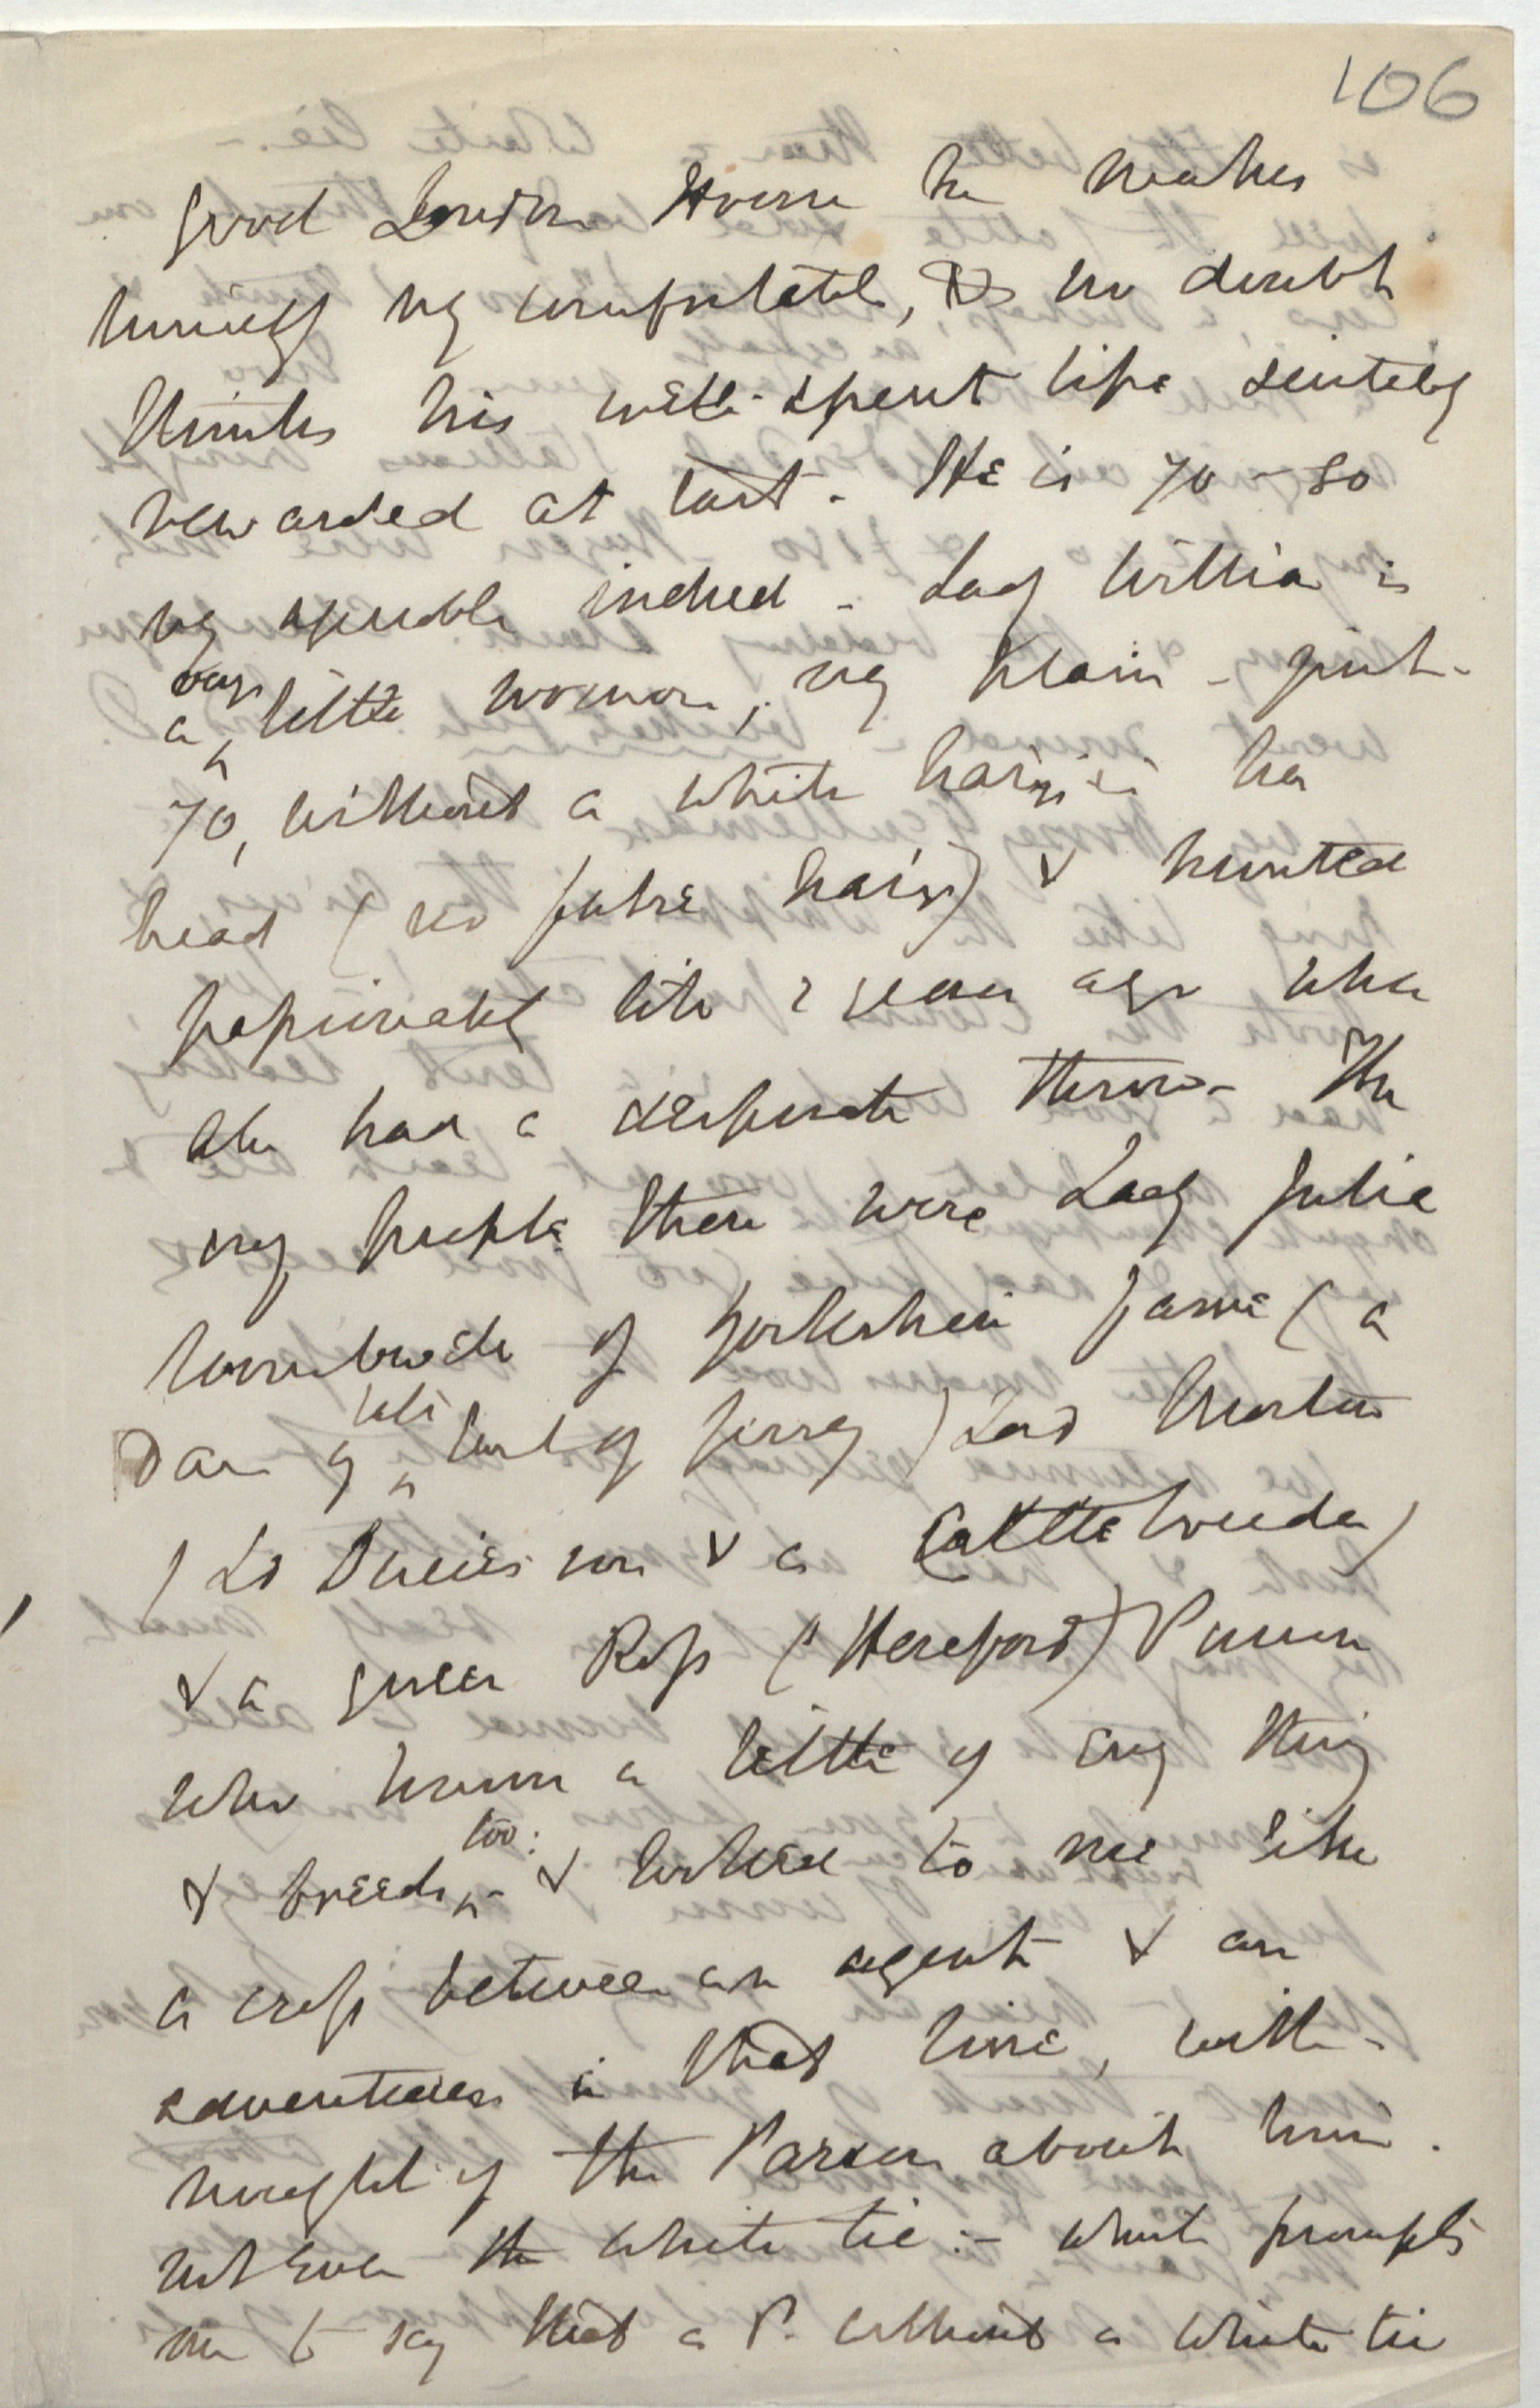 106
good London House he makes
himself vy comfortable, & no doubt
thinks his well-spent life suitably
rewarded at last. He is 70 - So
vy indeed - Lady Willia is
a ^ little woman, vy plain - just -
70, without a white hair in her
head (no false hair) & hunted
passionately till 2 years ago when
she had a desperate throw - The
only people there were Lady Julia
of Yorkshire fame (a
Dau of ^ late Earl of Jersey) Lord Moreton
(Ld Ducie's son & a Cattle breeder)
& a queer Ross (Hereford) Parson
who knows a little of every thing
& breeds ^ too: - & looked to me like
a cross between an agent & an
adventurer in that line, with -
nought of the Parson about him.
not even the white tie: - which prompts
me to say that a P. without a white tie